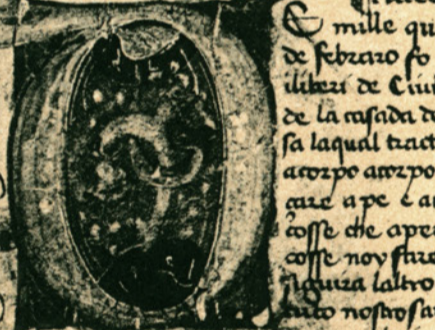 mille qu
de febraro fo
iliberi de Ciui
de la casada de
sa laqual tract
acorpo acorpo
care a pe e a
cosse che aper
cosse noy fare
laltro
nostro sa